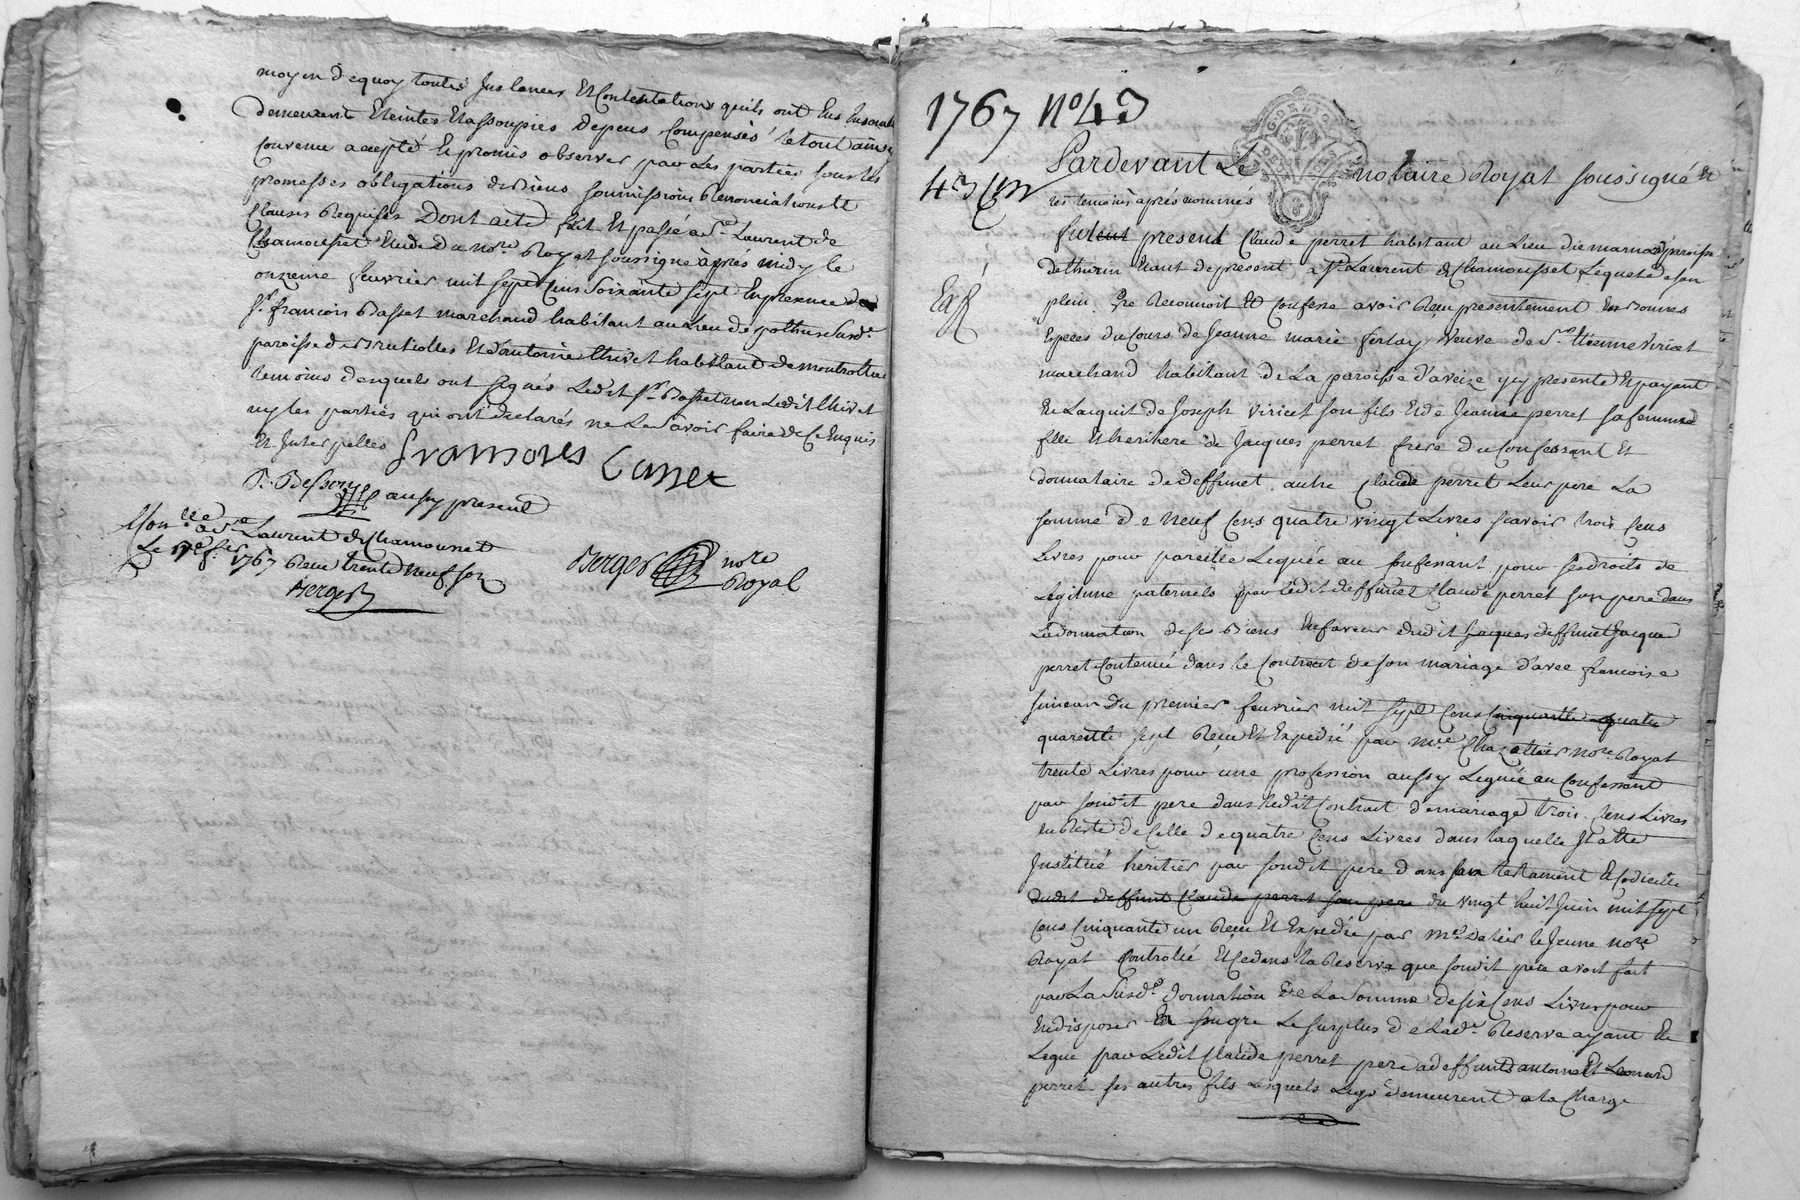 moyen dequoy toutes Instances Et Contestations quils ont Eus
demeurent Eteintes Et assoupies depens Compensés le tout ainsy
Convenu accepté Et promis observer par Les parties sous les
promesses obligations de Biens soumissions Renonciations Et
Clauses Requises Dont acte fait Et passé a St Laurent de
Chamousset Etude du nore Royal soussigné après midy le
onzieme feuvrier mil sept Cens Soixante sept En presence de
Sr françois Basset marchand habitant au Lieu de susde
paroisse de Brutiolles Et d'antoine Thivet habitant de montrottier
temoins desquels ont signés Ledit Sr Basset non Ledit Thivet
ny les parties qui ont declarés ne Le Savoir faire de Ce Enquis
Et Interpelles
aussy present
Con lle a St Laurent de Chamousset
Le fer 1767 Reçu trente neuf sols
Berger
Berger nore
Royal
1767 No 43
43
Pardevant Le notaire Royal soussigné Et
les temoins après nommés
fut present Claude perret habitant au Lieu de paroisse
de thurin Etant de present a St Laurent de Chamousset Lequel de son
plein gré Reconnoit Et Confesse avoir Reçu presentement En Bonnes
Especes du Cours de Jeanne marie ferlay Veuve de Sr Etienne Viricel
marchand habitant de La paroisse d'aveize y presente Et payant
En L'acquit de Joseph Viricel son fils Et de Jeanne perret sa femme
fille Et heritiere de Jacques perret frere du Confessant Et
donnataire de deffunt autre Claude perret Leur pere La
somme de neuf Cens quatre vingt Livres scavoir trois Cens
Livres pour pareille Leguée au Confessant pour ses droits de
Legitime paternels par Ledit deffunt Claude perret son pere dans
La donnation de ses Biens En faveur dudit Jacques deffunt Jacques
perret Contenüe dans le Contract de son mariage d'avec francoise
simean du premier feuvrier mil sept Cens Cinquante quatre
quarente sept Reçu Et Expedié par Mre Chazottier nore Royal
trente Livres pour une profession aussy Leguée au Confessant
par sondit pere dans Ledit Contract de mariage trois Cens Livres
En Reste de Celle de quatre Cens Livres dans laquelle Il a été
Institué heritier par sondit pere dans son testament Et Codicille
dudit deffunt Claude perret son pere du vingt huit Juin mil sept
Cens Cinquante un Reçu Et Expedié par Me le Jeune nore
Royal Controllé Et Ce dans la Reserve que sondit pere avoit fait
par La Susde donnation de La Somme de six Cens Livres pour
En disposer a son gré Le surplus de Lade Reserve ayant Eté
Legué par Ledit Claude perret pere a deffunts antoine Et Leonard
perret ses autres fils Lesquels Legs demeurent a la Charge